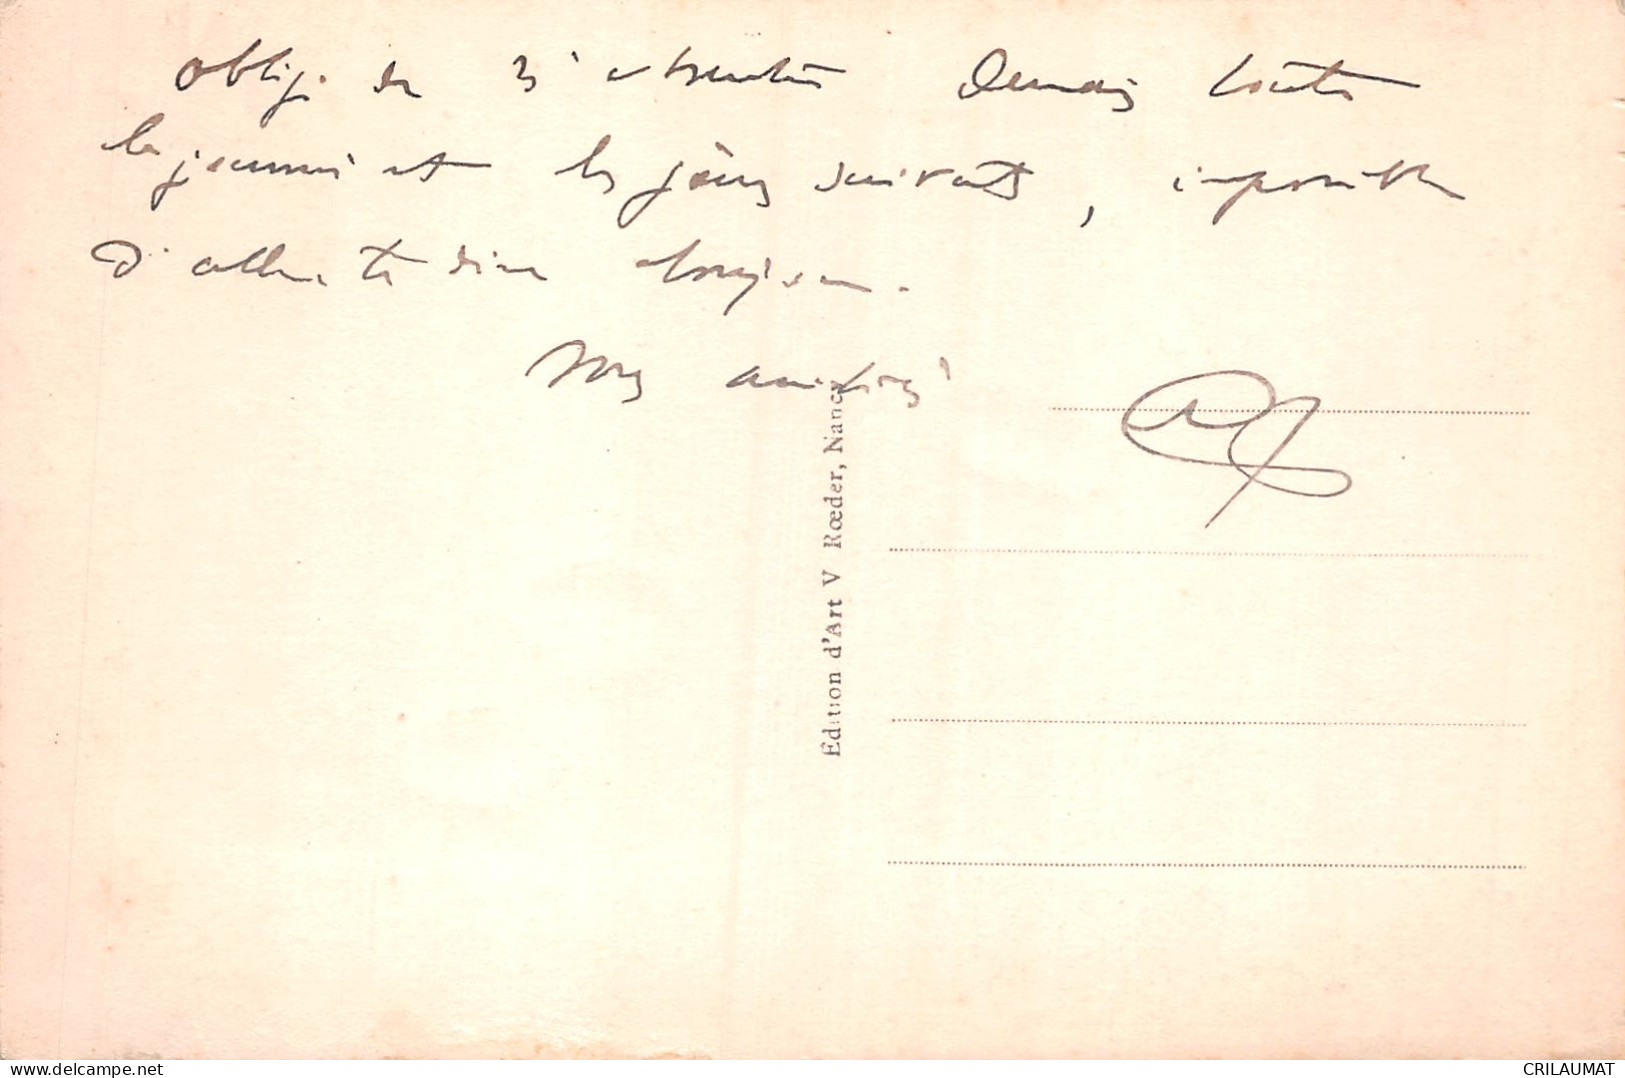 Obligé de m'absenter Demain toute
la journée et les jours suivants, impossible
d'aller te dire bonjour.
Mes amitiés
Édition d'Art V Rœder, Nancy
delcampe.net
CRILAUMAT